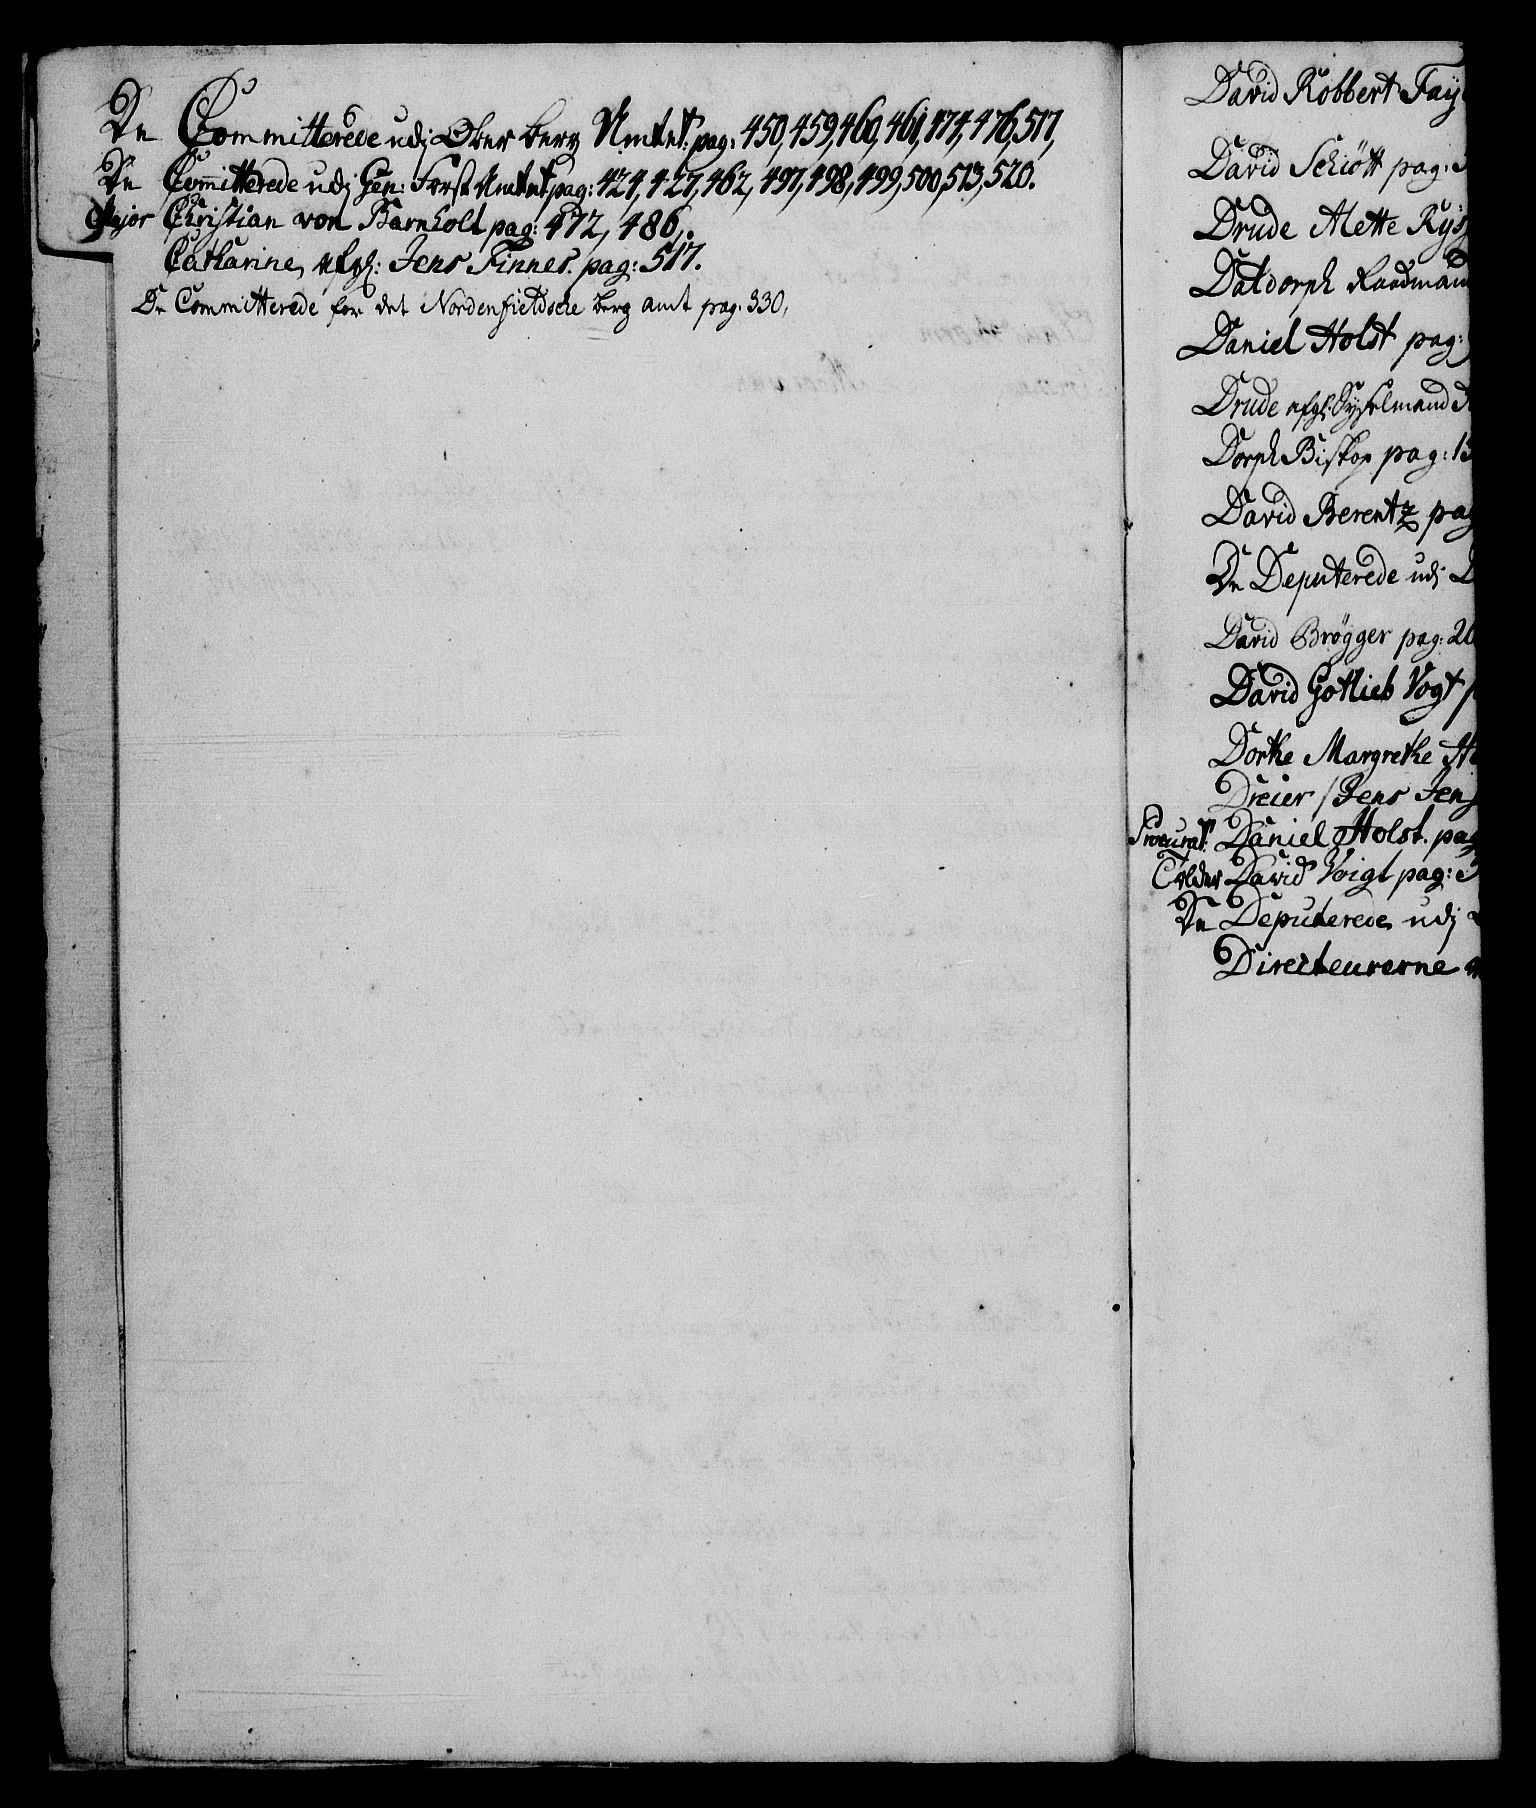 De Committerede udj Ober berg Amtet: pag: 450, 459, 460, 461, 474, 476, 517,
De Committerede udj Gen: Forst Amtet, pag: 424, 427, 462, 497, 498, 499, 500, 513, 520.
Major Christian von Barnholt pag: 472, 486,.
Catharine, afgl: Jens Finnes. pag: 517.
De Committerede for det Nordenfieldsche berg amt pag. 330,
David Robbert Fay
David Schiött pag:
Drude Mette Rys
Datdorph Raadmand
Daniel Holst pag:
Drude afgl: Sysselmand
Dorph Biskop pag: 15
David Berentz pag
De Deputerede udj
David Brögger pag: 20
David Gotlieb Vogt p
Dorthe Margrethe H
Dreier / Jens Jens
Procurat: Daniel Holst. pag
Tolder David Voigt pag:
De Deputerede udj
Directeurerne